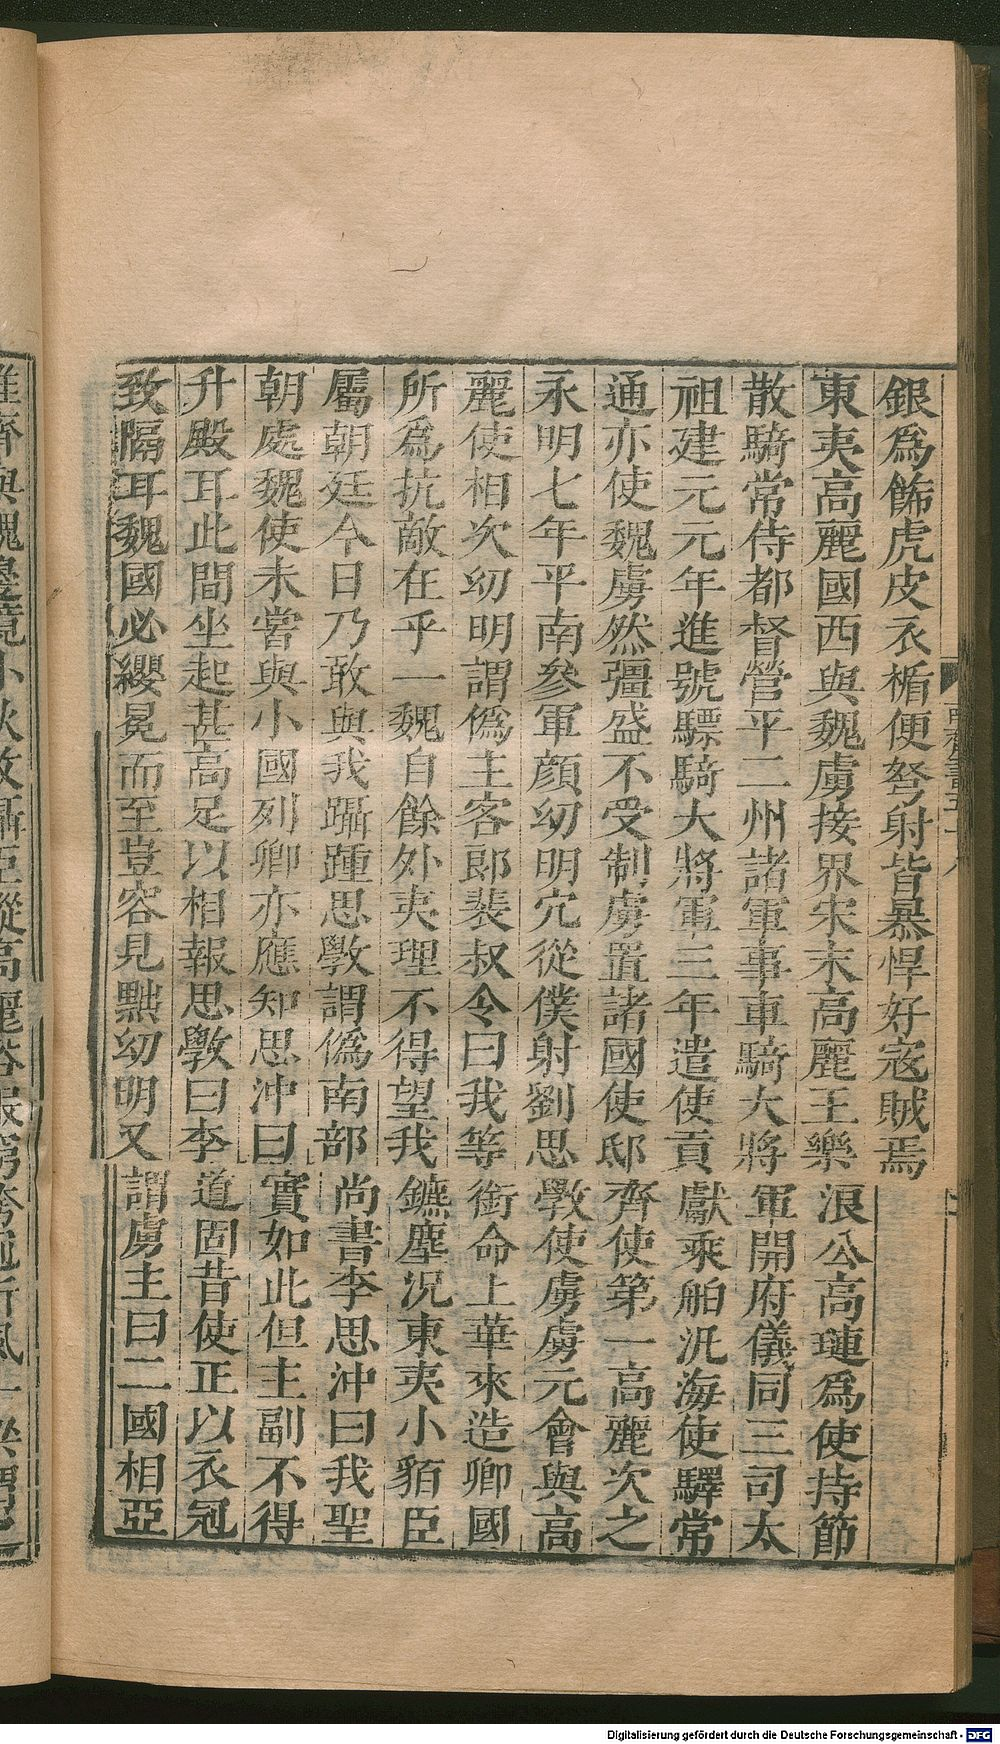 銀爲飾虎皮衣楯便弩射皆暴悍好寇賊焉
東夷高麗國西與魏虜接界宋末高麗王樂浪公高璉爲使持節
散騎常侍都督營平二州諸軍事車騎大將軍開府儀同三司太
祖建元元年進號驃騎大將軍三年遣使貢獻乘舶汎海使驛常
通亦使魏虜然彊盛不受制虜置諸國使邸齊使第一高麗次之
永明七年平南參軍顔幼明穴從僕射劉思斆使虜虜元會與高
麗使相次幼明謂僞主客郎裴叔令曰我等銜命上華來造卿國
所爲抗敵在乎一魏自餘外夷理不得望我鑣塵況東夷小貊臣
屬朝廷今日乃敢與我躡踵思斆謂僞南部尚書李思沖曰我聖
朝處魏使未嘗與小國列卿亦應知思沖曰實如此但主副不得
升殿耳此間坐起甚高足以相報思斆曰李道固昔使正以衣冠
致隔耳魏國必纓冕而至豈容見黜幼明又謂虜主曰二國相亞
唯齊與魏邊境小狄敢躡臣蹤高麗
Digitalisierung gefördert durch die Deutsche Forschungsgemeinschaft - DFG